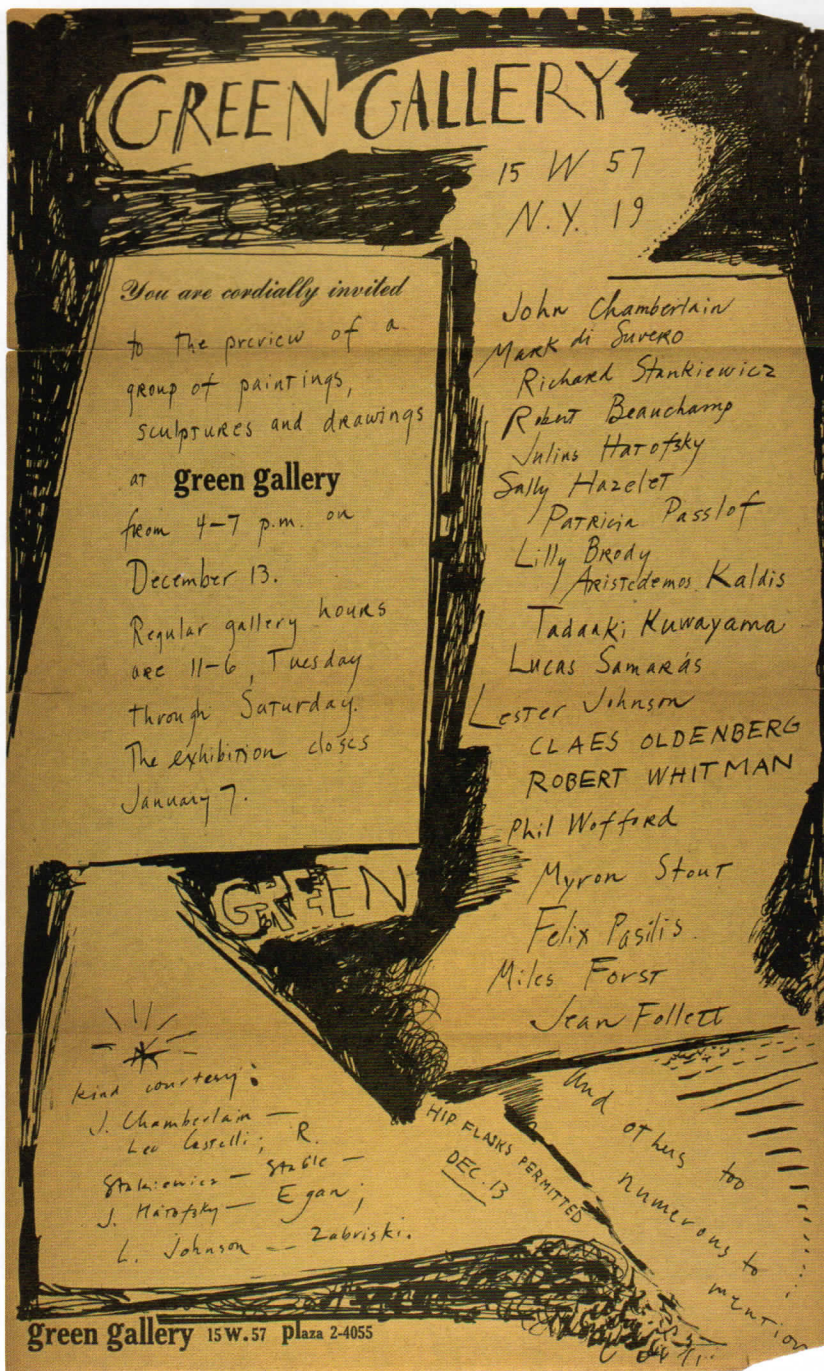 GREEN GALLERY
15 W 57
N.Y. 19
You are cordially invited
to the preview of a
group of paintings,
sculptures and drawings
at green gallery
from 4–7 p.m. on
December 13.
Regular gallery hours
are 11–6, Tuesday
through Saturday.
The exhibition closes
January 7.
John Chamberlain
Mark di Suvero
Richard Stankiewicz
Robert Beauchamp
Julius Hatofsky
Sally Hazelet
Patricia Passlof
Lilly Brody
Aristedemos Kaldis
Tadaaki Kuwayama
Lucas Samarás
Lester Johnson
CLAES OLDENBERG
ROBERT WHITMAN
Phil Wofford
Myron Stout
Felix Pasilis
Miles Forst
Jean Follett
And
others too
numerous to
mention
GREEN
kind courtesy:
J. Chamberlain —
Leo Castelli; R.
Stakiewicz — Stable —
J. Hatofsky — Egan;
L. Johnson — Zabriski.
HIP FLASKS PERMITTED
DEC. 13
green gallery 15 W. 57 plaza 2-4055